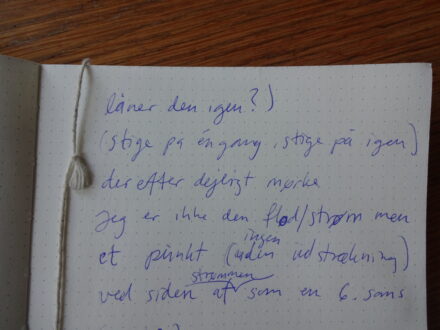 låner den igen?)
(stige på éngang, stige på igen)
derefter dejligt mørke
Jeg er ikke den flod/strøm men
et punkt (uden ingen udstrækning)
ved siden af strømmen som en 6. sans